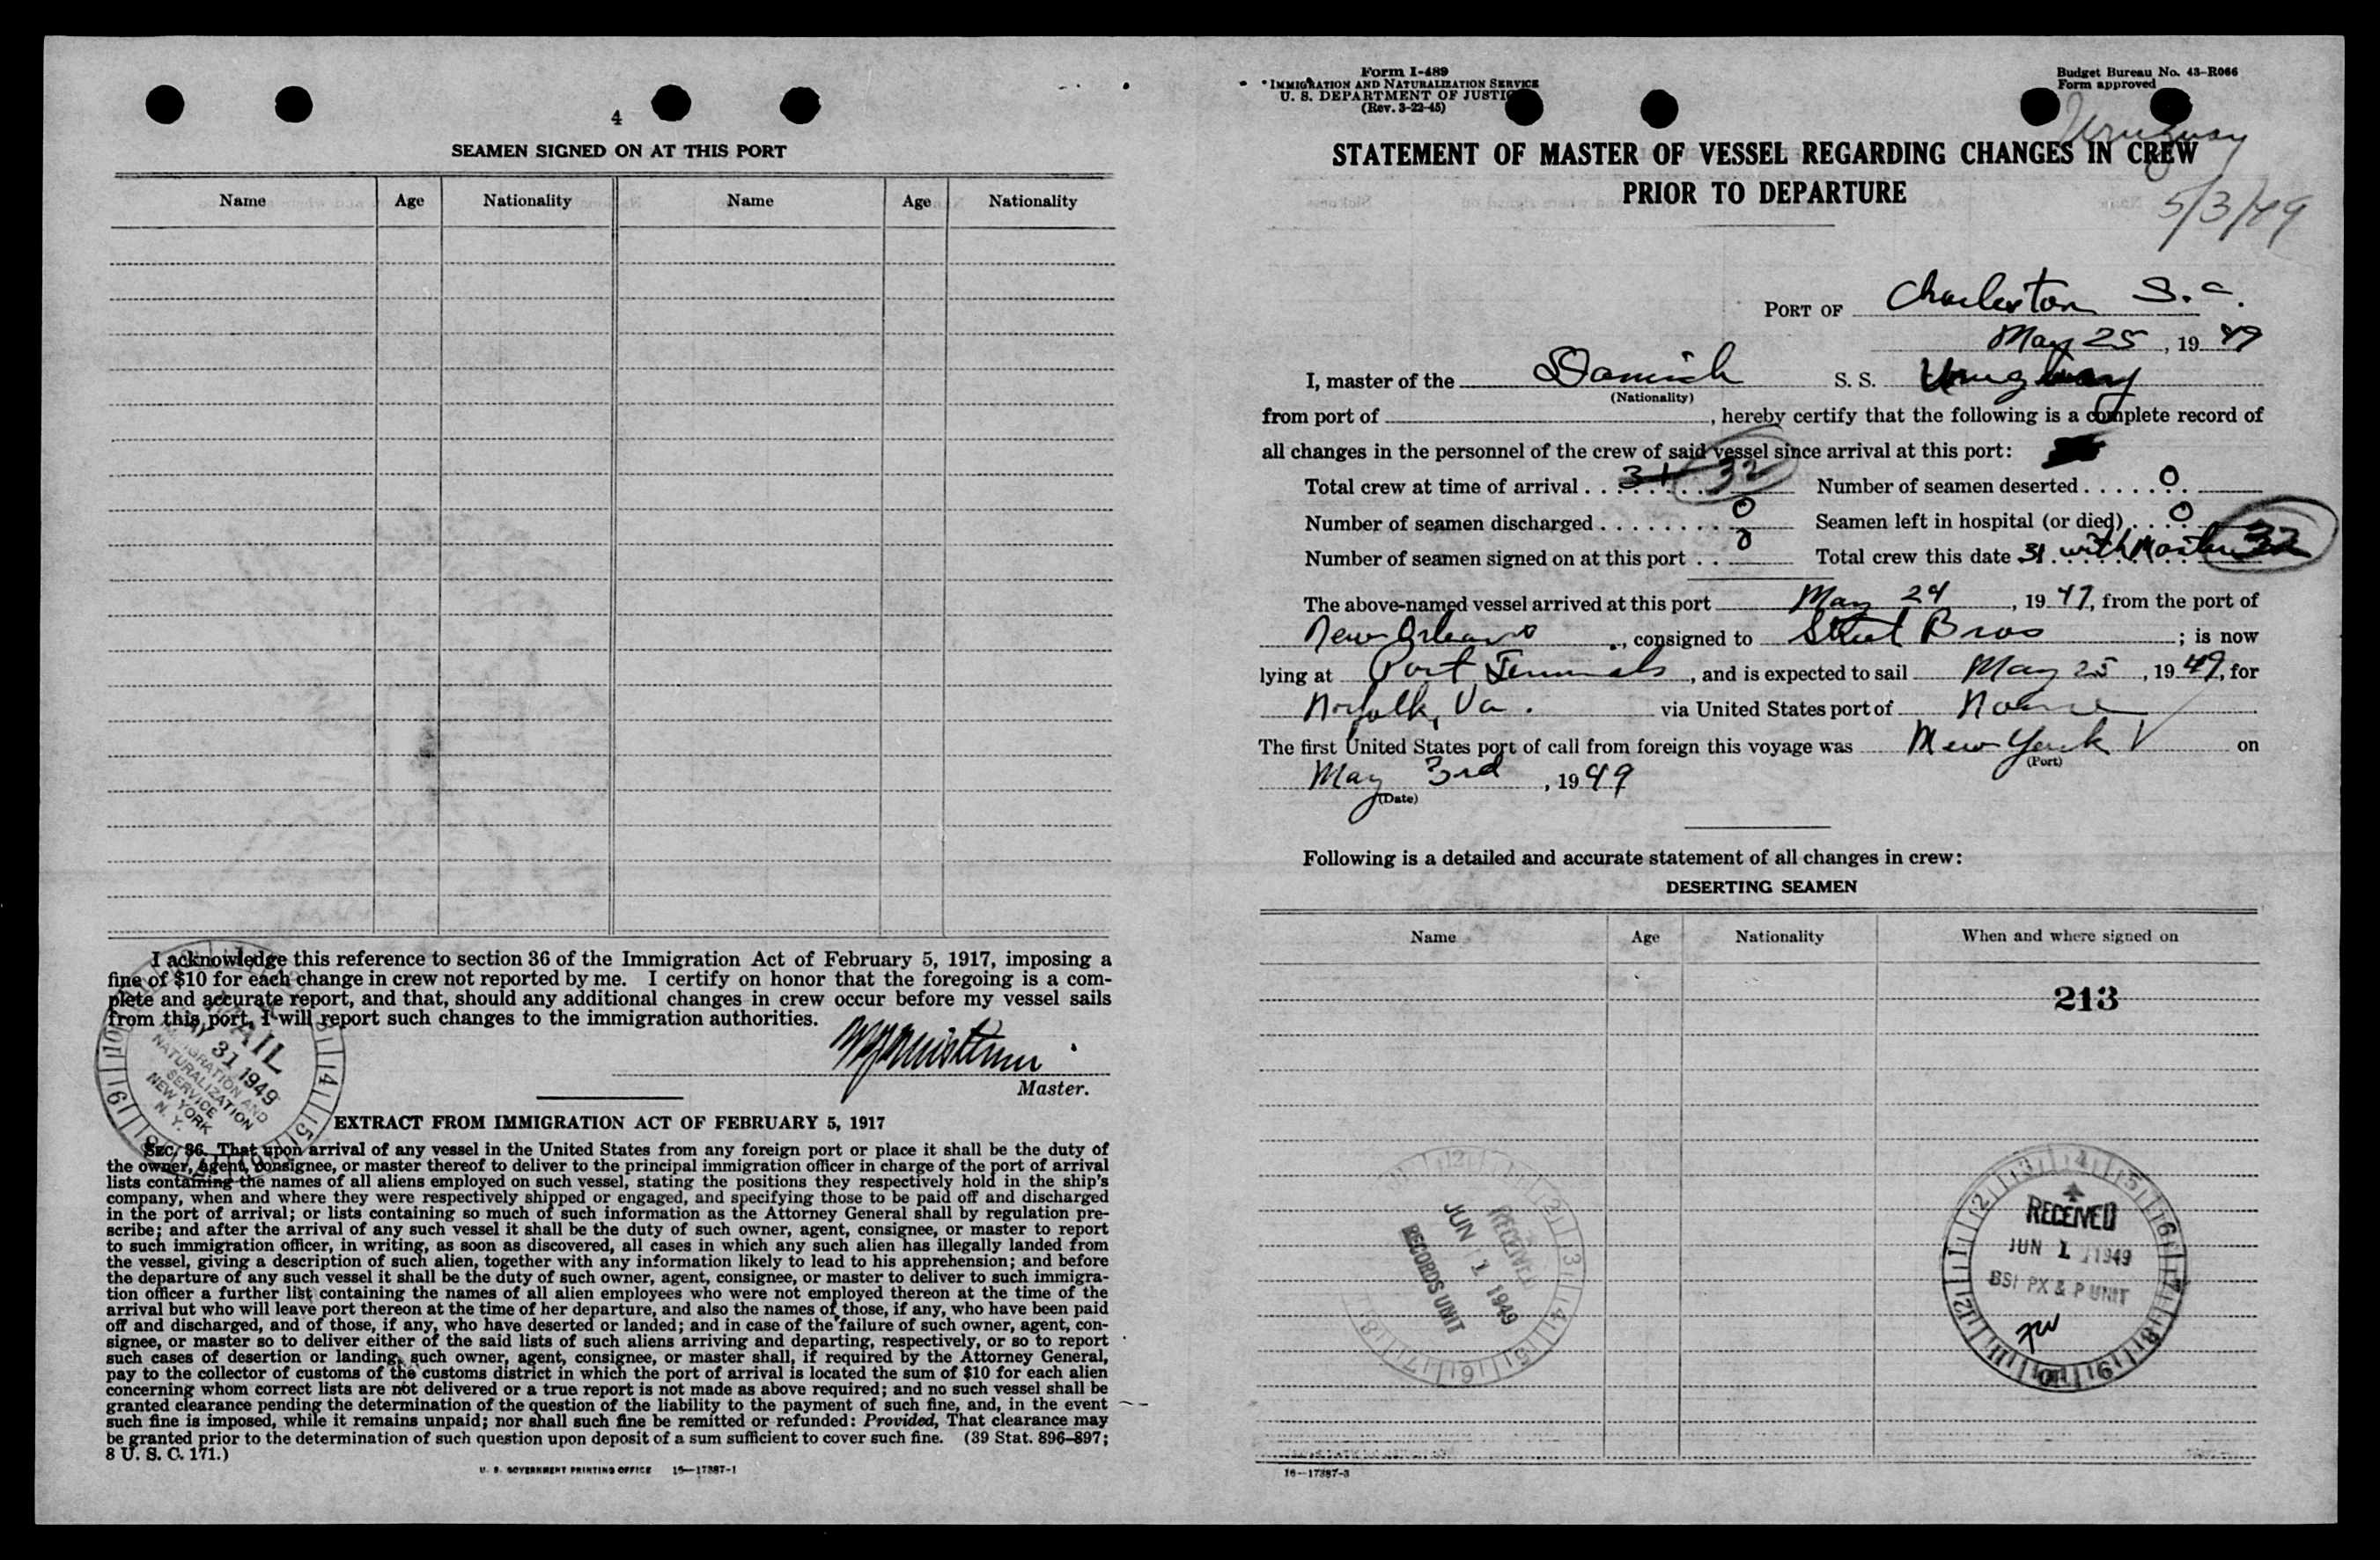 4
SEAMEN SIGNED ON AT THIS PORT
Name Age Nationality Name Age Nationality
I acknowledge this reference to section 36 of the Immigration Act of February 5, 1917, imposing a
fine of $10 for each change in crew not reported by me. I certify on honor that the foregoing is a com-
plete and accurate report, and that, should any additional changes in crew occur before my vessel sails
from this port, I will report such changes to the immigration authorities.
Master.
MAIL
31 1949
IMMIGRATION AND
NATURALIZATION
SERVICE
NEW YORK
N. Y.
EXTRACT FROM IMMIGRATION ACT OF FEBRUARY 5, 1917
SEC. 36. That upon arrival of any vessel in the United States from any foreign port or place it shall be the duty of
the owner, agent, consignee, or master thereof to deliver to the principal immigration officer in charge of the port of arrival
lists containing the names of all aliens employed on such vessel, stating the positions they respectively hold in the ship's
company, when and where they were respectively shipped or engaged, and specifying those to be paid off and discharged
in the port of arrival; or lists containing so much of such information as the Attorney General shall by regulation pre-
scribe; and after the arrival of any such vessel it shall be the duty of such owner, agent, consignee, or master to report
to such immigration officer, in writing, as soon as discovered, all cases in which any such alien has illegally landed from
the vessel, giving a description of such alien, together with any information likely to lead to his apprehension; and before
the departure of any such vessel it shall be the duty of such owner, agent, consignee, or master to deliver to such immigra-
tion officer a further list containing the names of all alien employees who were not employed thereon at the time of the
arrival but who will leave port thereon at the time of her departure, and also the names of those, if any, who have been paid
off and discharged, and of those, if any, who have deserted or landed; and in case of the failure of such owner, agent, con-
signee, or master so to deliver either of the said lists of such aliens arriving and departing, respectively, or so to report
such cases of desertion or landing, such owner, agent, consignee, or master shall, if required by the Attorney General,
pay to the collector of customs of the customs district in which the port of arrival is located the sum of $10 for each alien
concerning whom correct lists are not delivered or a true report is not made as above required; and no such vessel shall be
granted clearance pending the determination of the question of the liability to the payment of such fine, and, in the event
such fine is imposed, while it remains unpaid; nor shall such fine be remitted or refunded: Provided, That clearance may
be granted prior to the determination of such question upon deposit of a sum sufficient to cover such fine. (39 Stat. 896-897;
8 U. S. C. 171.)
U. S. GOVERNMENT PRINTING OFFICE 16—17887-1
Form I-489
IMMIGRATION AND NATURALIZATION SERVICE
U. S. DEPARTMENT OF JUSTICE
(Rev. 3-22-45)
Budget Bureau No. 43-R066
Form approved
Uruguay
5/3/49
STATEMENT OF MASTER OF VESSEL REGARDING CHANGES IN CREW
PRIOR TO DEPARTURE
PORT OF Charleston S.C.
May 25, 1949
I, master of the Danish S. S. Uruguay
(Nationality)
from port of , hereby certify that the following is a complete record of
all changes in the personnel of the crew of said vessel since arrival at this port:
Total crew at time of arrival 31 32 Number of seamen deserted 0
Number of seamen discharged 0 Seamen left in hospital (or died) 0
Number of seamen signed on at this port 0 Total crew this date 31 with Master 32
The above-named vessel arrived at this port May 24, 1949, from the port of
New Orleans, consigned to Street Bros ; is now
lying at Port Terminals, and is expected to sail May 25, 1949, for
Norfolk, Va. via United States port of None
The first United States port of call from foreign this voyage was New York on
(Port)
May 3rd, 1949
(Date)
Following is a detailed and accurate statement of all changes in crew:
DESERTING SEAMEN
Name Age Nationality When and where signed on
213
RECEIVED
JUN 1 1949
RECORDS UNIT
RECEIVED
JUN 1 1949
BSI PX & P UNIT
16—17887-3